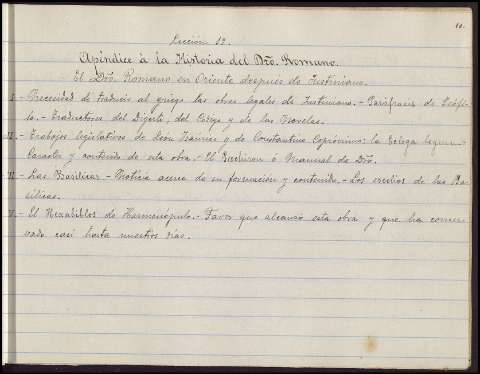 10.
Lección 12.
Apéndice á la Historia del Dro. Romano.
El Dro. Romano en Oriente después de Justiniano.
I.- Necesidad de traducir al griego las obras legales de Justiniano.- Paráfrasis de Teófi-
lo.- Traductores del Digesto, del Código y de las Novelas.
II.- Trabajos legislativos de León Isáurico y de Constantino Coprónimo: la Ecloga legum.-
Carácter y contenido de esta obra.- El Prochiron ó Manual de Dro.
III.- Las Basílicas.- Noticia acerca de su formación y contenido.- Los escolios de las Ba-
sílicas.
IV.- El Hexabiblos de Hermenópulo.- Favor que alcanzó esta obra y que ha conser-
vado casi hasta nuestros días.